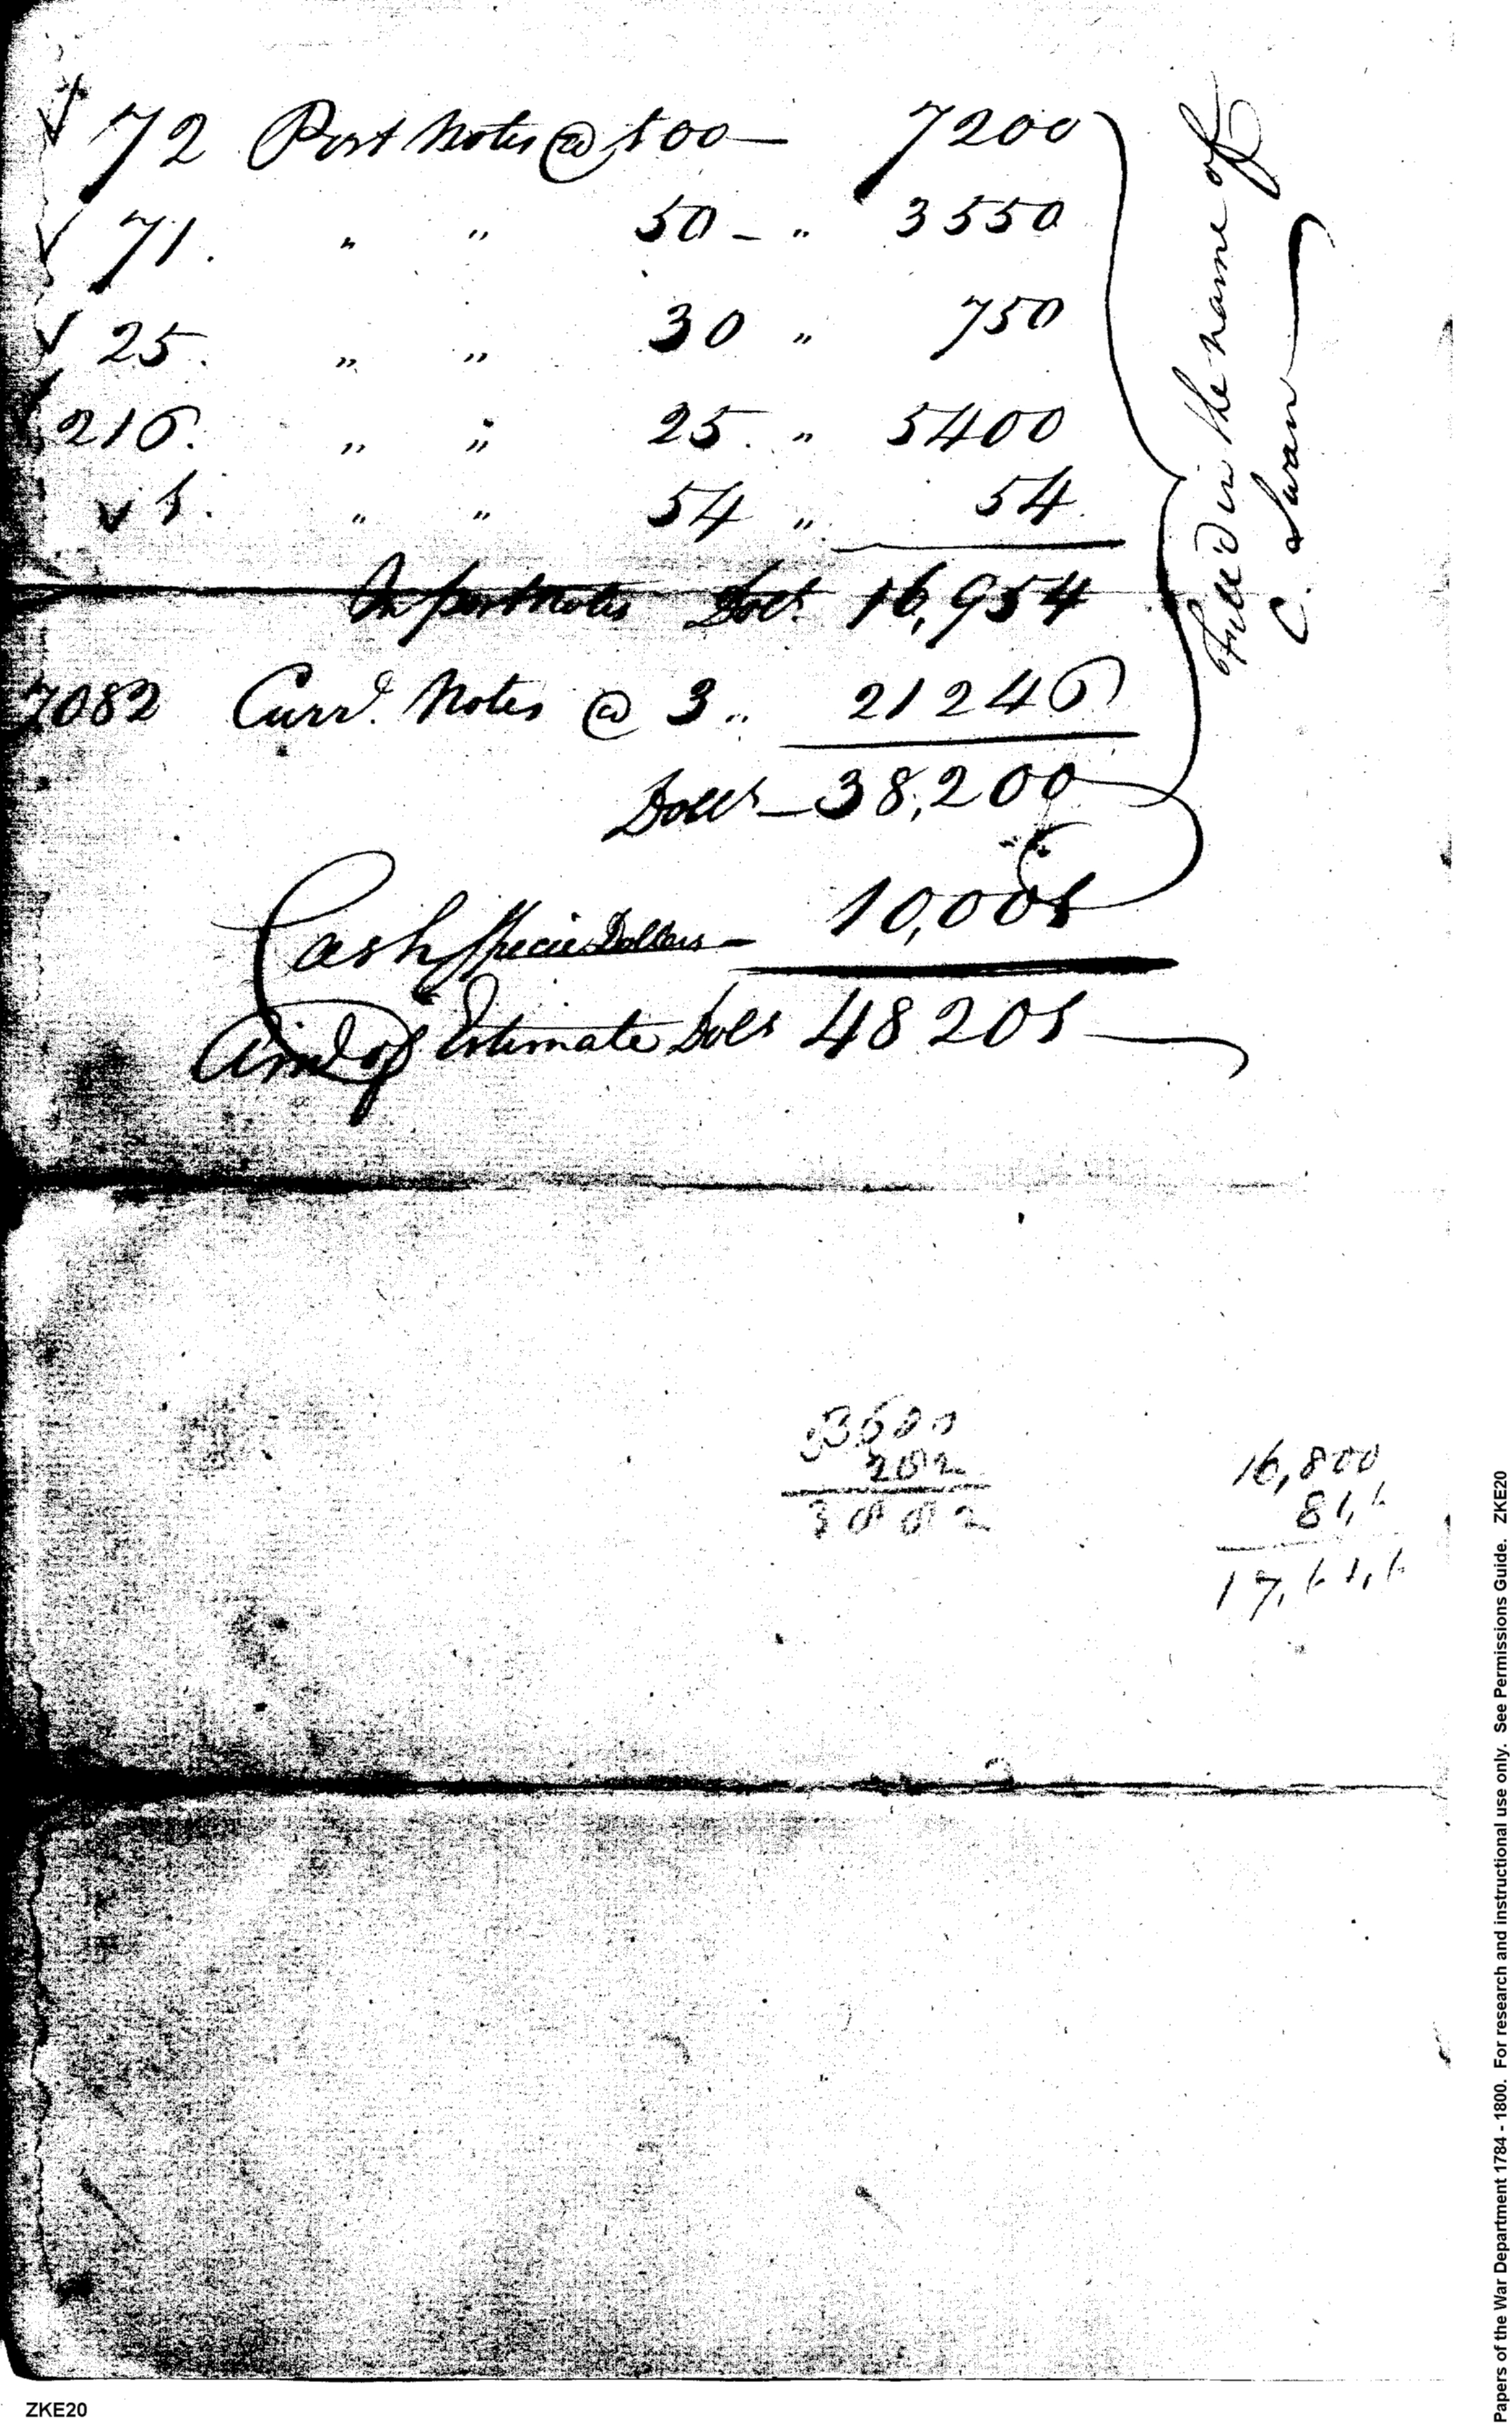 ✓ 72 Post Notes @ 100 — 7200
✓ 71. " " 50 — " 3550
✓ 25. " " 30 " 750
216. " " 25. " 5400
✓ 1. " " 54 " 54
In post notes Dolls 16,954
7082 Curr.t Notes @ 3 " 21246
Dolls — 38,200
Cash Specie Dollars — 10,001
Am.t of Estimate Dolls 48201
Fill'd in the name of
C. Swan
202
16,800
ZKE20
Papers of the War Department 1784 - 1800. For research and instructional use only. See Permissions Guide. ZKE20